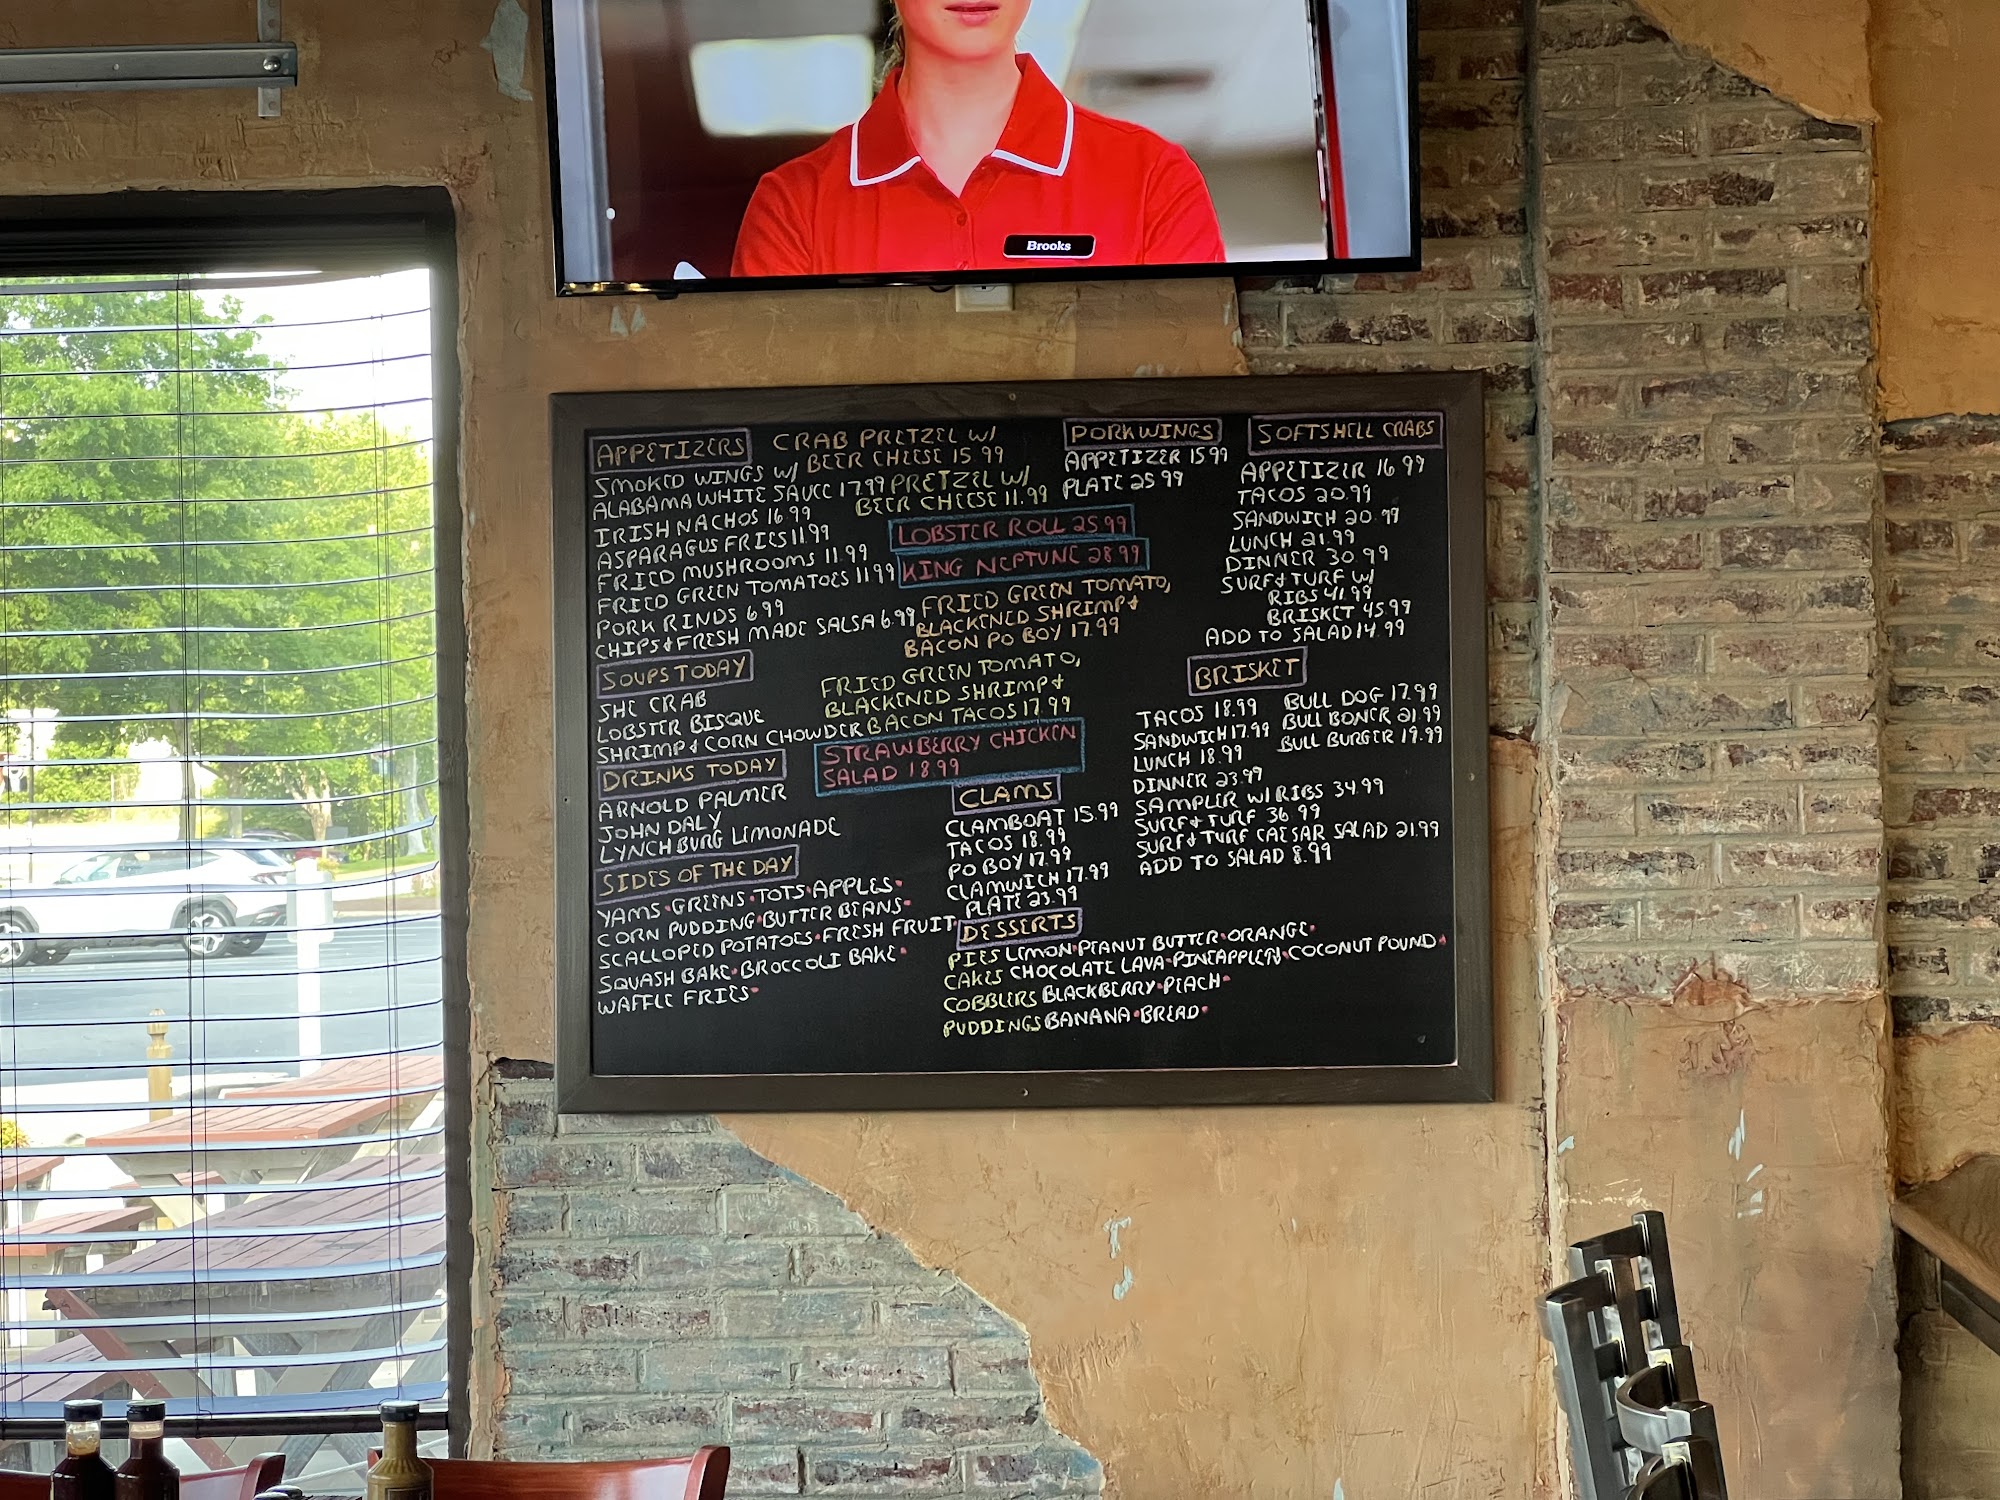 Brooks
APPETIZERS
SMOKED WINGS W/
ALABAMA WHITE SAUCE 17.99
IRISH NACHOS 16.99
ASPARAGUS FRIES 11.99
FRIED MUSHROOMS 11.99
FRIED GREEN TOMATOES 11.99
PORK RINDS 6.99
CHIPS & FRESH MADE SALSA 6.99
SOUPS TODAY
SHE CRAB
LOBSTER BISQUE
SHRIMP & CORN CHOWDER
DRINKS TODAY
ARNOLD PALMER
JOHN DALY
LYNCHBURG LEMONADE
SIDES OF THE DAY
YAMS • GREENS • TOTS • APPLES •
CORN PUDDING • BUTTER BEANS •
SCALLOPED POTATOES • FRESH FRUIT •
SQUASH BAKE • BROCCOLI BAKE •
WAFFLE FRIES •
CRAB PRETZEL W/
BEER CHEESE 15.99
PRETZEL W/
BEER CHEESE 11.99
LOBSTER ROLL 25.99
KING NEPTUNE 28.99
FRIED GREEN TOMATO,
BLACKENED SHRIMP &
BACON PO BOY 17.99
FRIED GREEN TOMATO,
BLACKENED SHRIMP &
BACON TACOS 17.99
STRAWBERRY CHICKEN
SALAD 18.99
CLAMS
CLAMBOAT 15.99
TACOS 18.99
PO BOY 17.99
CLAMWICH 17.99
PLATE 23.99
DESSERTS
PIES LEMON • PEANUT BUTTER • ORANGE •
CAKES CHOCOLATE LAVA • PINEAPPLE • COCONUT POUND •
COBBLERS BLACKBERRY • PEACH •
PUDDINGS BANANA • BREAD •
PORK WINGS
APPETIZER 15.99
PLATE 25.99
SOFTSHELL CRABS
APPETIZER 16.99
TACOS 20.99
SANDWICH 20.99
LUNCH 21.99
DINNER 30.99
SURF & TURF W/
RIBS 41.99
BRISKET 45.99
ADD TO SALAD 14.99
BRISKET
TACOS 18.99
SANDWICH 17.99
LUNCH 18.99
DINNER 23.99
SAMPLER W/ RIBS 34.99
SURF & TURF 36.99
SURF & TURF CAESAR SALAD 21.99
ADD TO SALAD 8.99
BULL DOG 17.99
BULL BONER 21.99
BULL BURGER 19.99